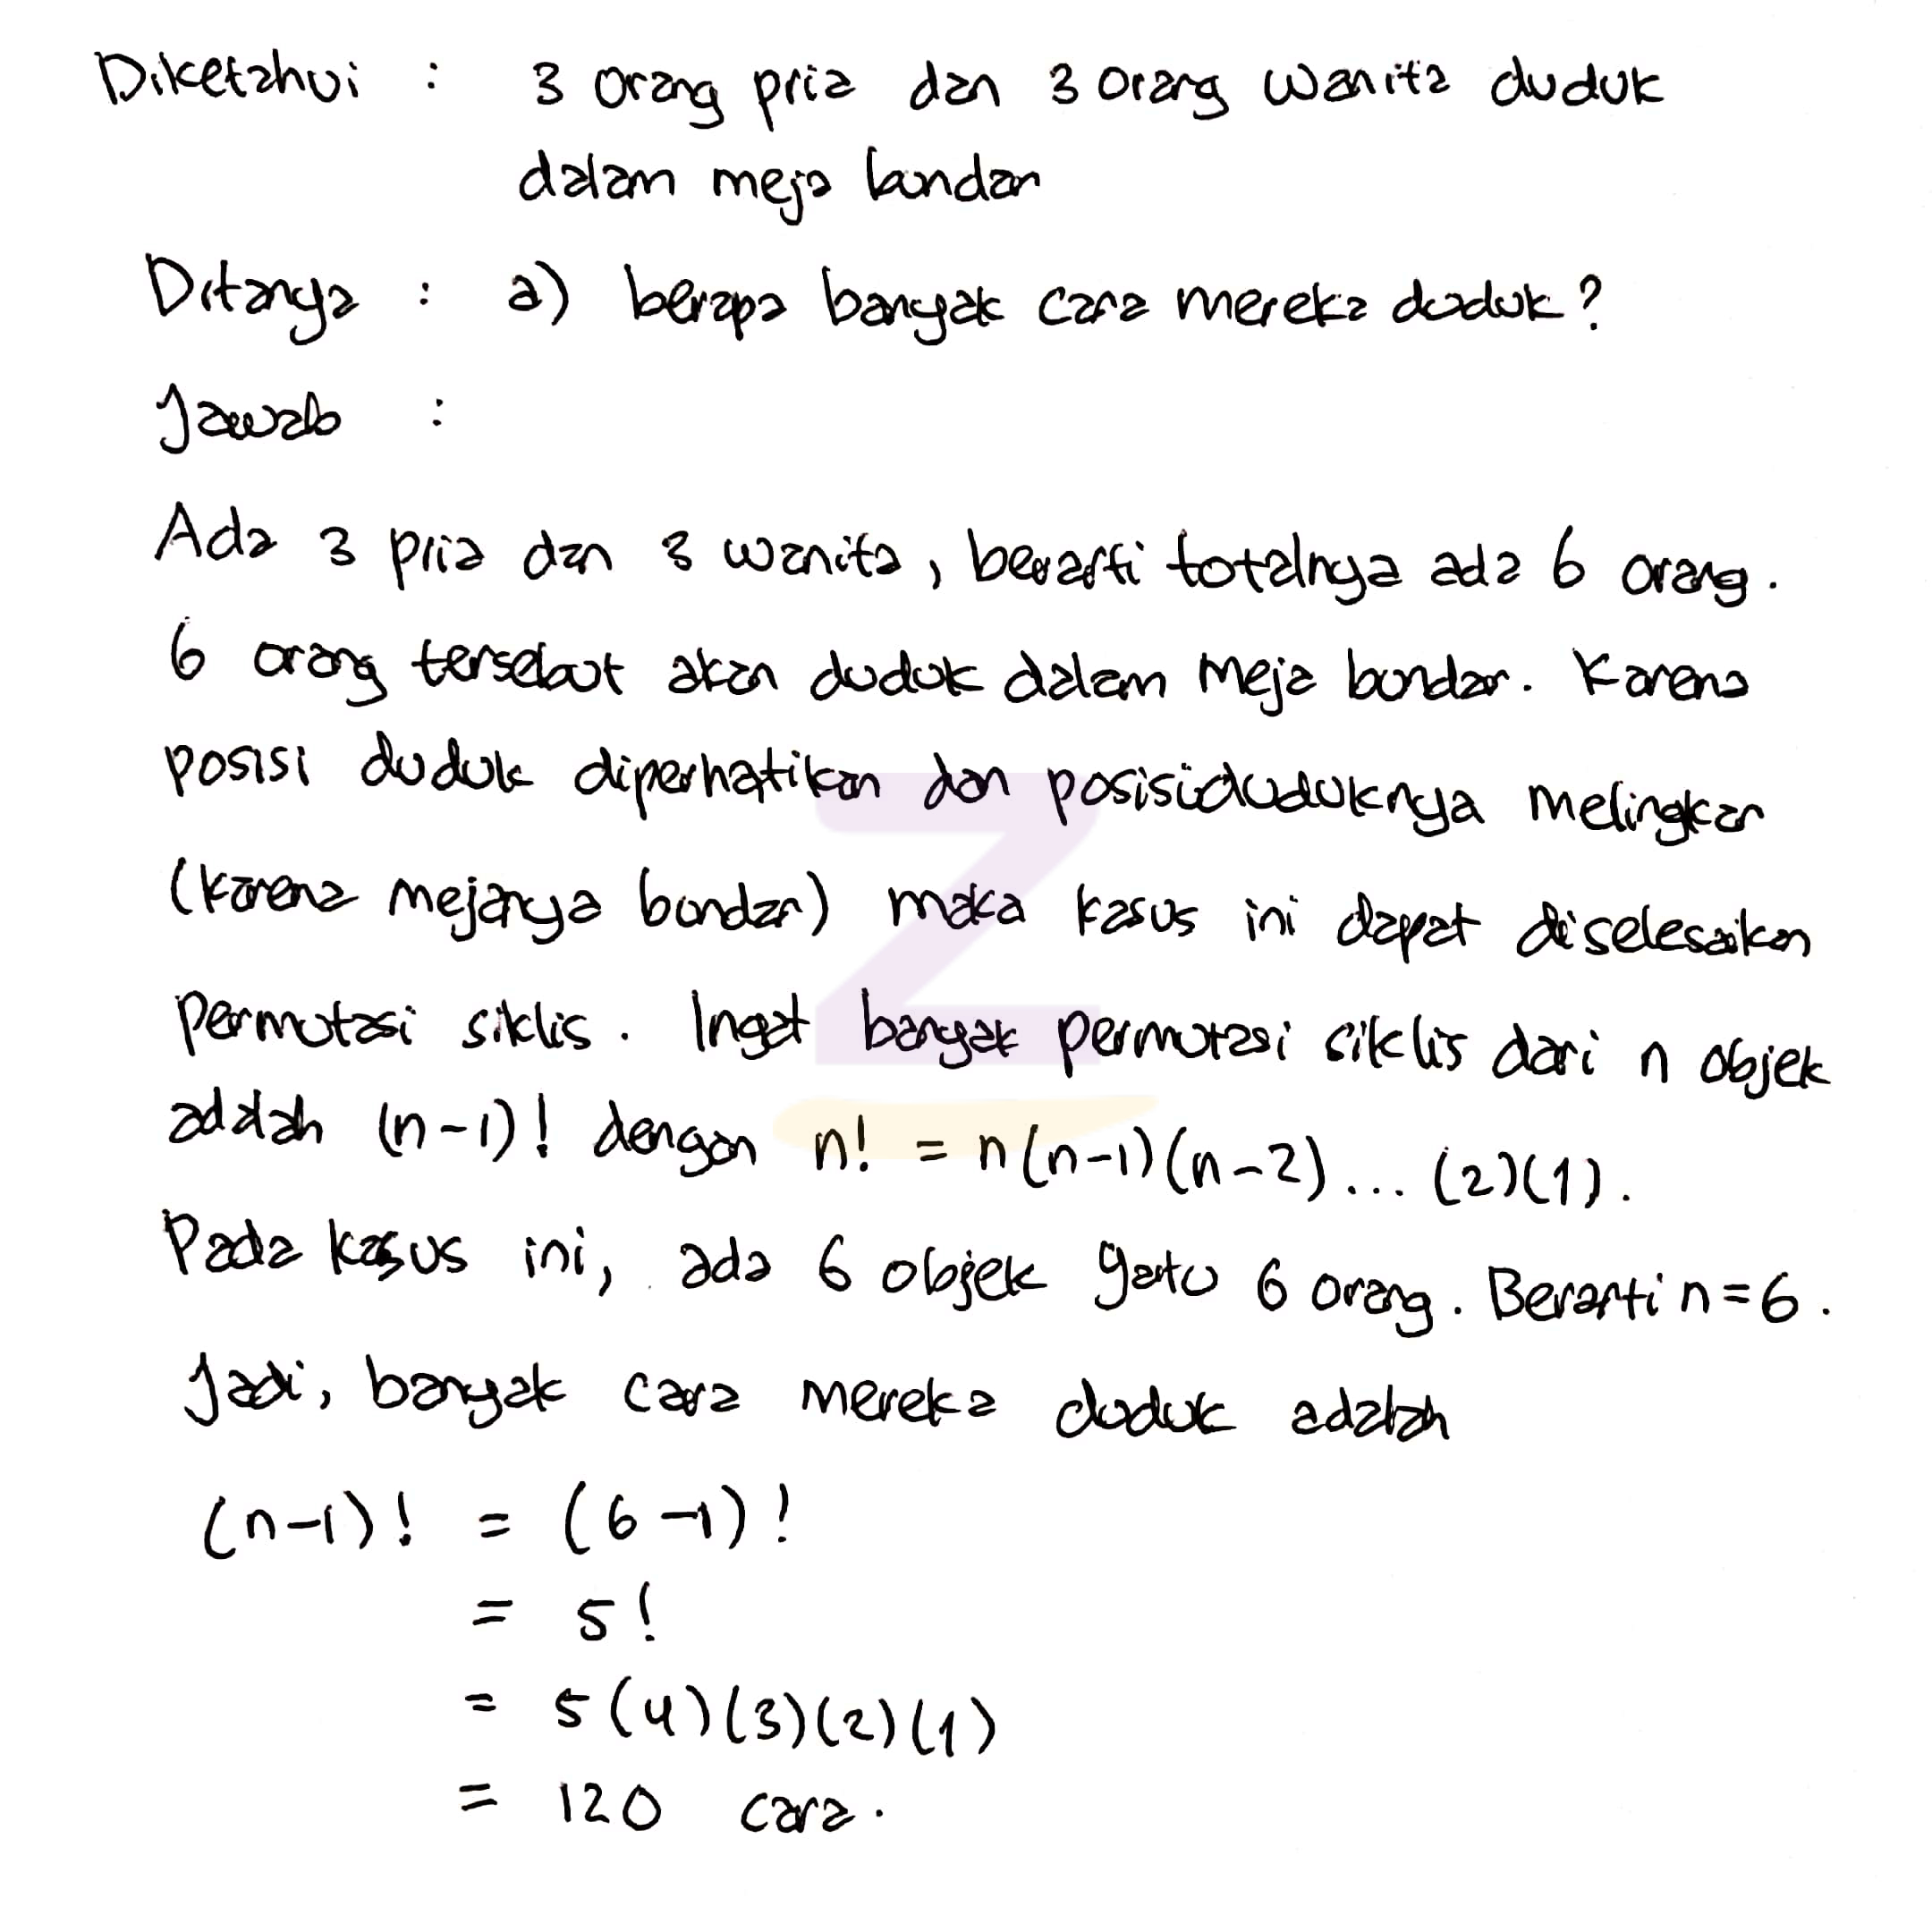 Diketahui : 3 orang pria dan 3 orang wanita duduk
dalam meja bundar
Ditanya : a) berapa banyak cara mereka duduk?
Jawab :
Ada 3 pria dan 3 wanita, berarti totalnya ada 6 orang.
6 orang tersebut akan duduk dalam meja bundar. Karena
posisi duduk diperhatikan dan posisi duduknya melingkar
(karena mejanya bundar) maka kasus ini dapat diselesaikan
permutasi siklis. Ingat banyak permutasi siklis dari n objek
adalah (n-1)! dengan n! = n(n-1)(n-2)... (2)(1).
Pada kasus ini, ada 6 objek yaitu 6 orang. Berarti n=6.
Jadi, banyak cara mereka duduk adalah
(n-1)! = (6-1)!
= 5!
= 5(4)(3)(2)(1)
= 120 cara.
Z